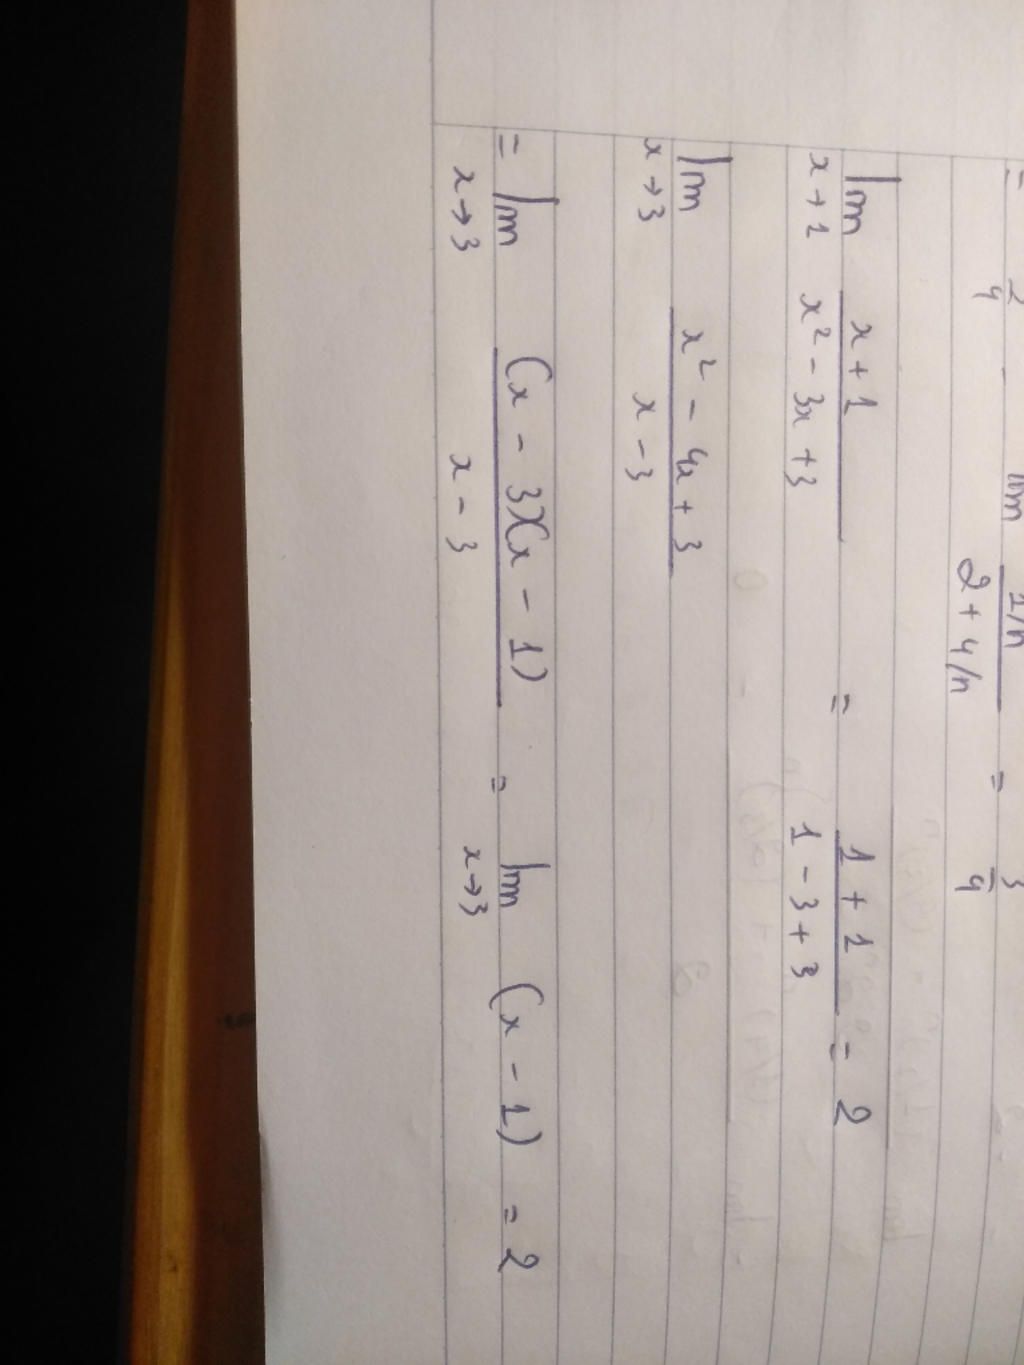 = 2/4 - lim (1/n)/(2 + 4/n) = 3/4
lim x→1 (x + 1)/(x² - 3x + 3) = (1 + 1)/(1 - 3 + 3) = 2
lim x→3 (x² - 4x + 3)/(x - 3)
= lim x→3 ((x - 3)(x - 1))/(x - 3) = lim x→3 (x - 1) = 2